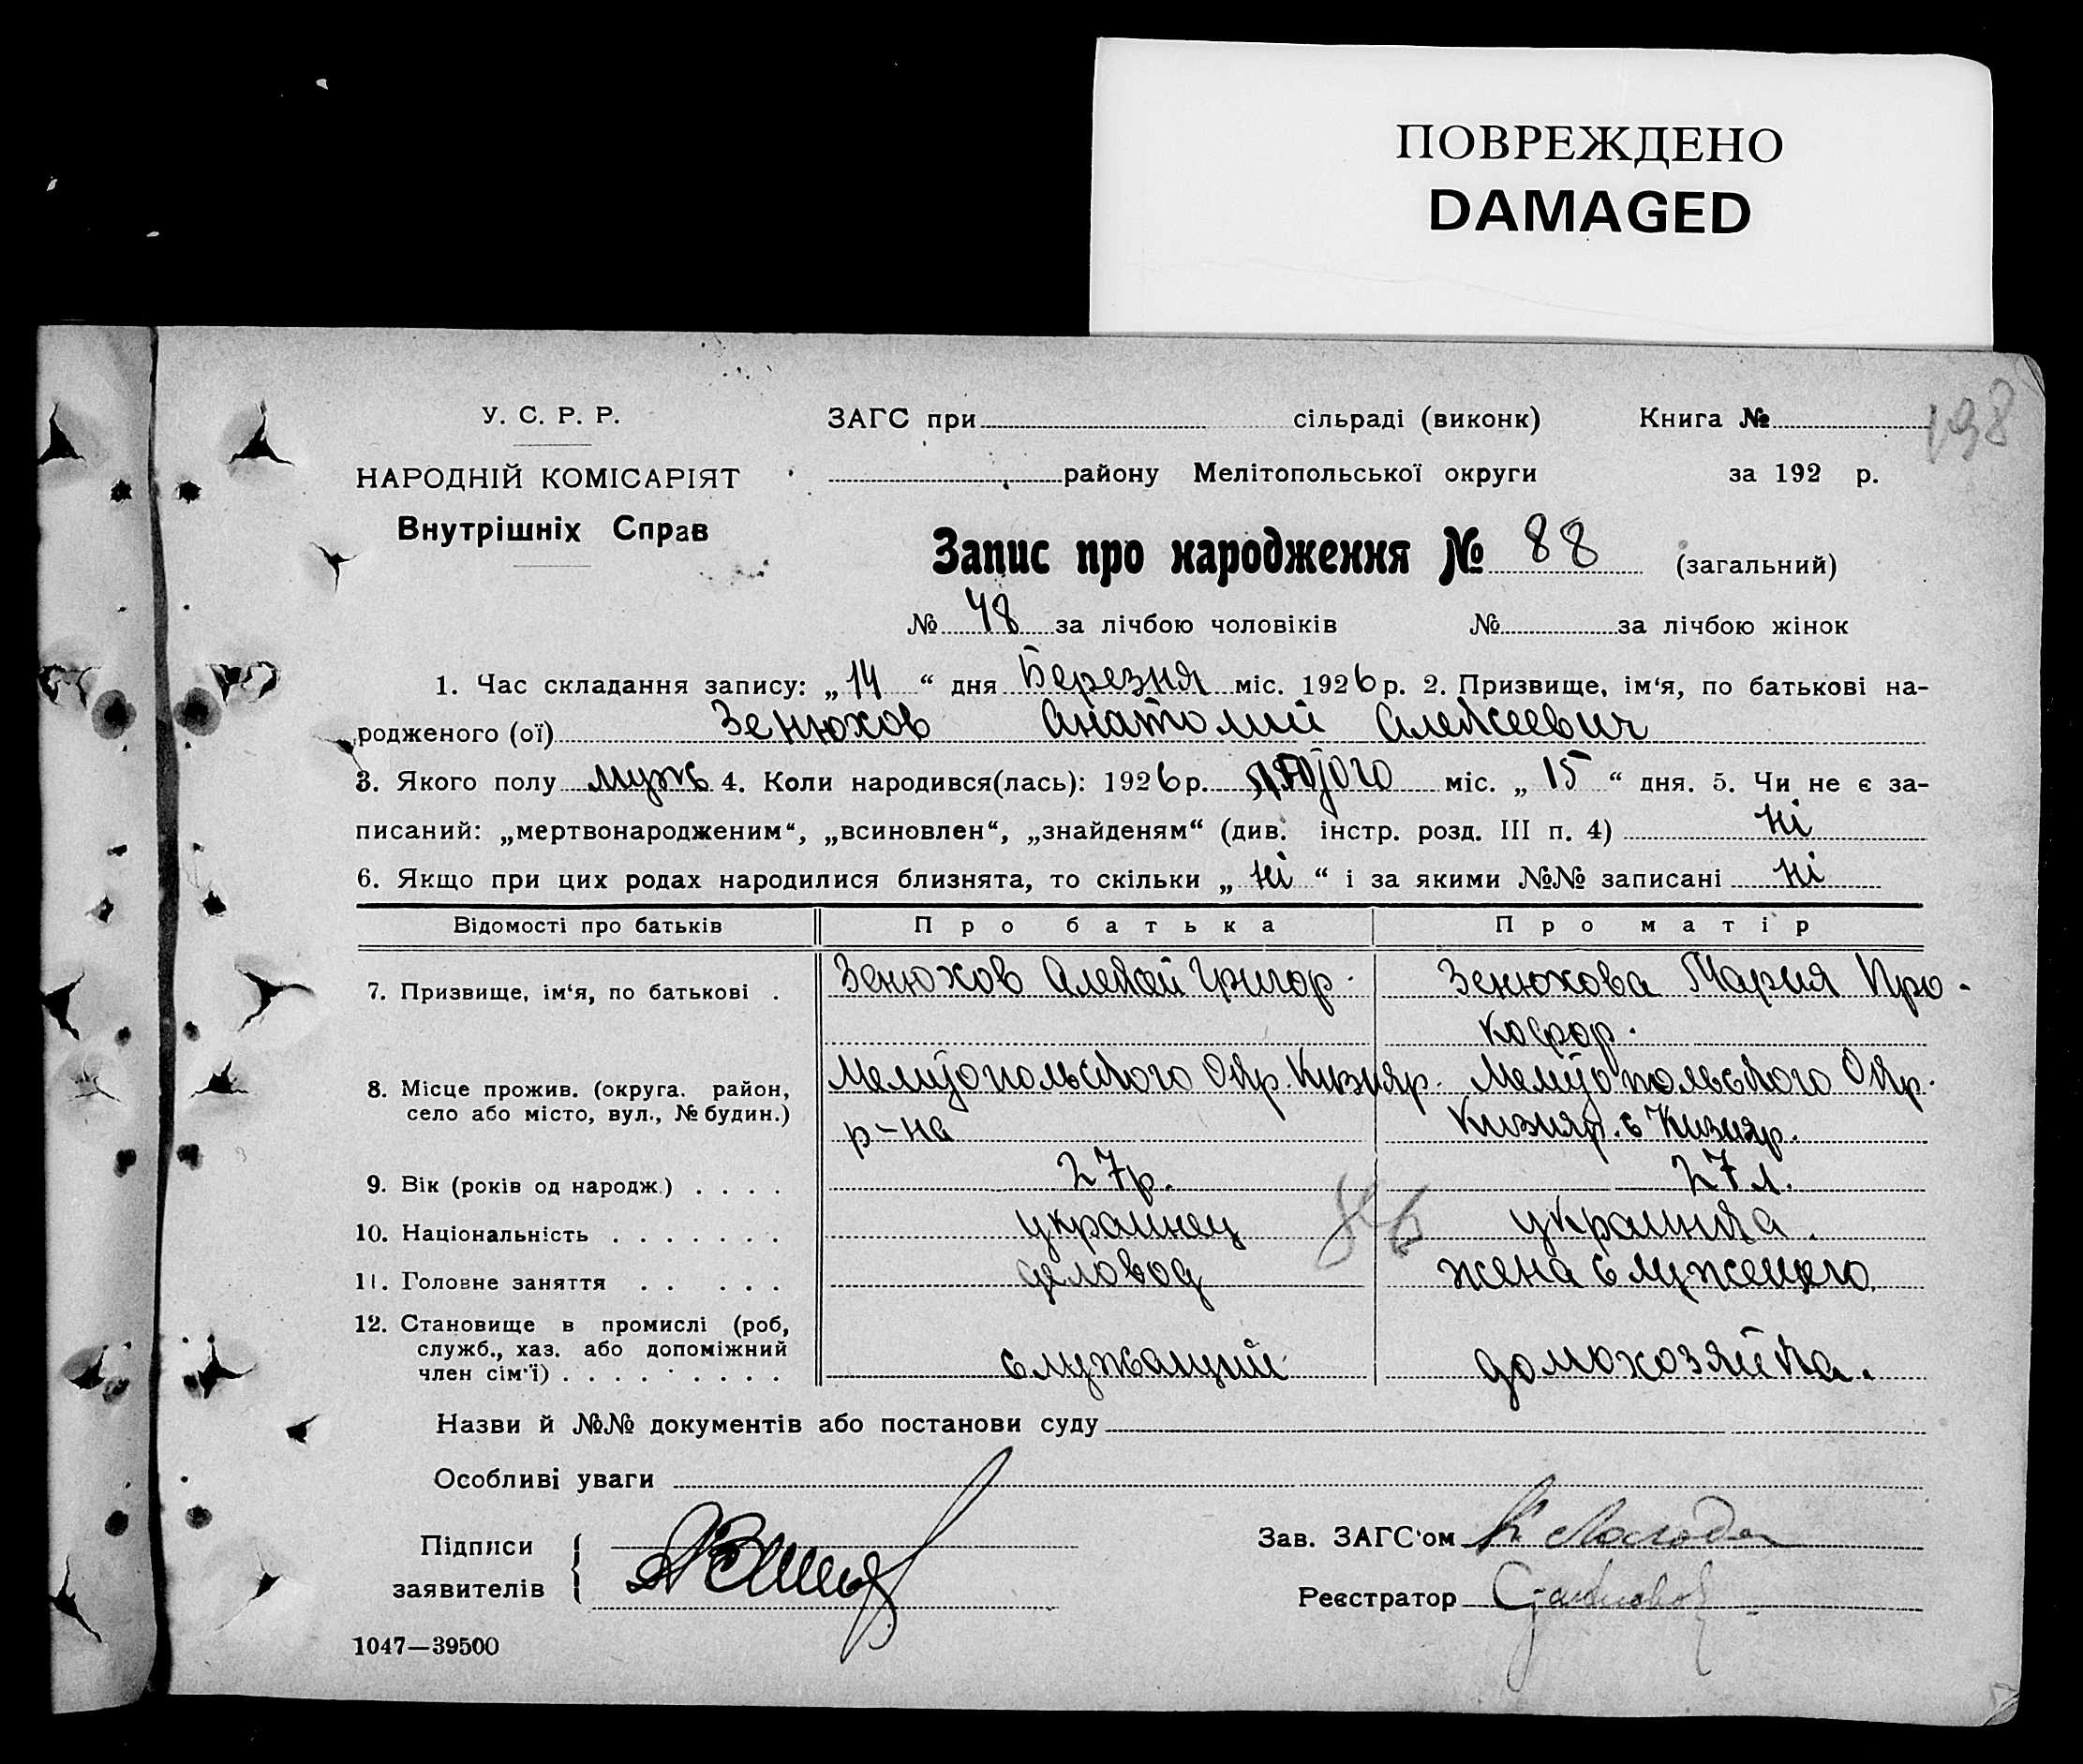 ПОВРЕЖДЕНО
DAMAGED
198
У. С. Р. Р.
НАРОДНІЙ КОМІСАРІЯТ
Внутрішніх Справ
ЗАГС при сільраді (виконк) Книга №
району Мелітопольської округи за 192 р.
Запис про народження № 88 (загальний)
№ 48 за лічбою чоловіків № за лічбою жінок
1. Час складання запису: „14“ дня Березня міс. 1926 р. 2. Призвище, ім‘я, по батькові на-
родженого (ої) Зенюхов Анатолий Алексеевич
3. Якого полу муж 4. Коли народився(лась): 1926 р. лютого міс. „15“ дня. 5. Чи не є за-
писаний: „мертвонародженим“, „всиновлен“, „знайденям“ (див. інстр. розд. III п. 4) ні
6. Якщо при цих родах народилися близнята, то скільки „ні“ і за якими №№ записані ні
Відомості про батьків Про батька Про матір
7. Призвище, ім‘я, по батькові . Зенюхов Алексей Григор. Зенюхова Мария Про-
кофор.
8. Місце прожив. (округа. район, село або місто, вул., № будин.) Мелитопольского Окр. Кизияр. Мелитопольского Окр.
р-на Кизияр. с Кизияр.
9. Вік (років од народж.) . . . . 27 р. 27 л.
10. Національність . . . . . . . украинец украинка.
86
11. Головне заняття . . . . . деловод жена служещего.
12. Становище в промислі (роб, служб., хаз. або допоміжний член сім‘ї) . . . . . . . . . служащий домохозяйка.
Назви й №№ документів або постанови суду
Особливі уваги
Підписи
заявителів
Зав. ЗАГС‘ом
Реєстратор
1047—39500